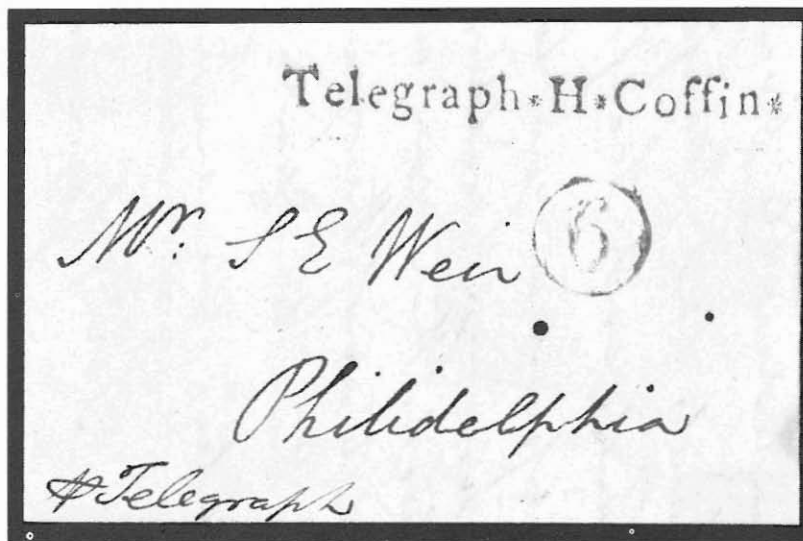 Telegraph*H*Coffin*
6
Mr. S E Weir
Philidelphia
Telegraph